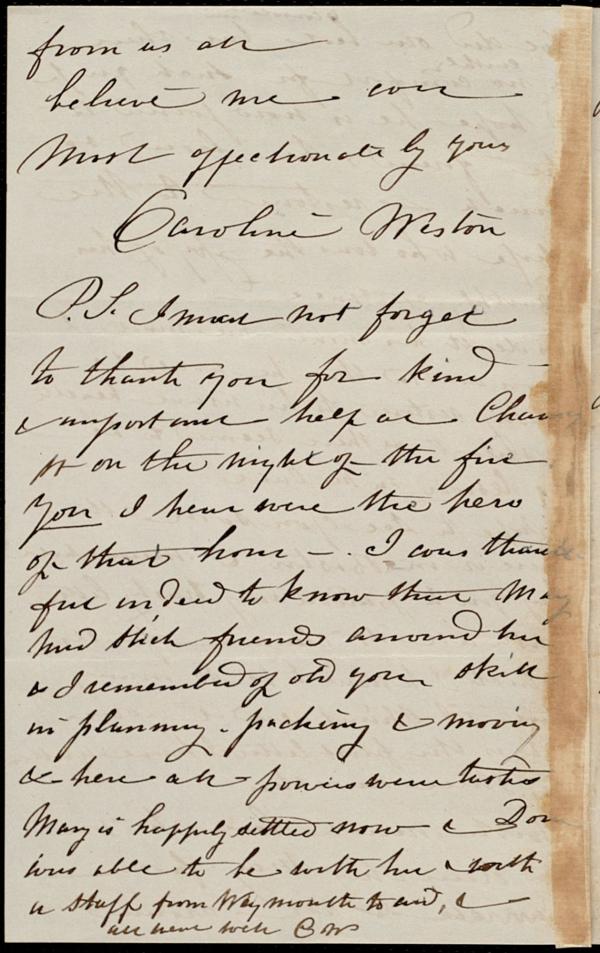 from us all
believe me ever
Most affectionately yours
Caroline Weston
P.S. I must not forget
to thank you for kind
& important help at Chauncy
St on the night of the fire
You I hear were the hero
of that hour — . I was thank
ful indeed to know that Mary
had such friends around her
& I remembered of old your skill
in planning - packing & moving
& here all powers were tested
Mary is happily settled now &
was able to be with her & with
a staff from Weymouth to aid, &
all went well CW